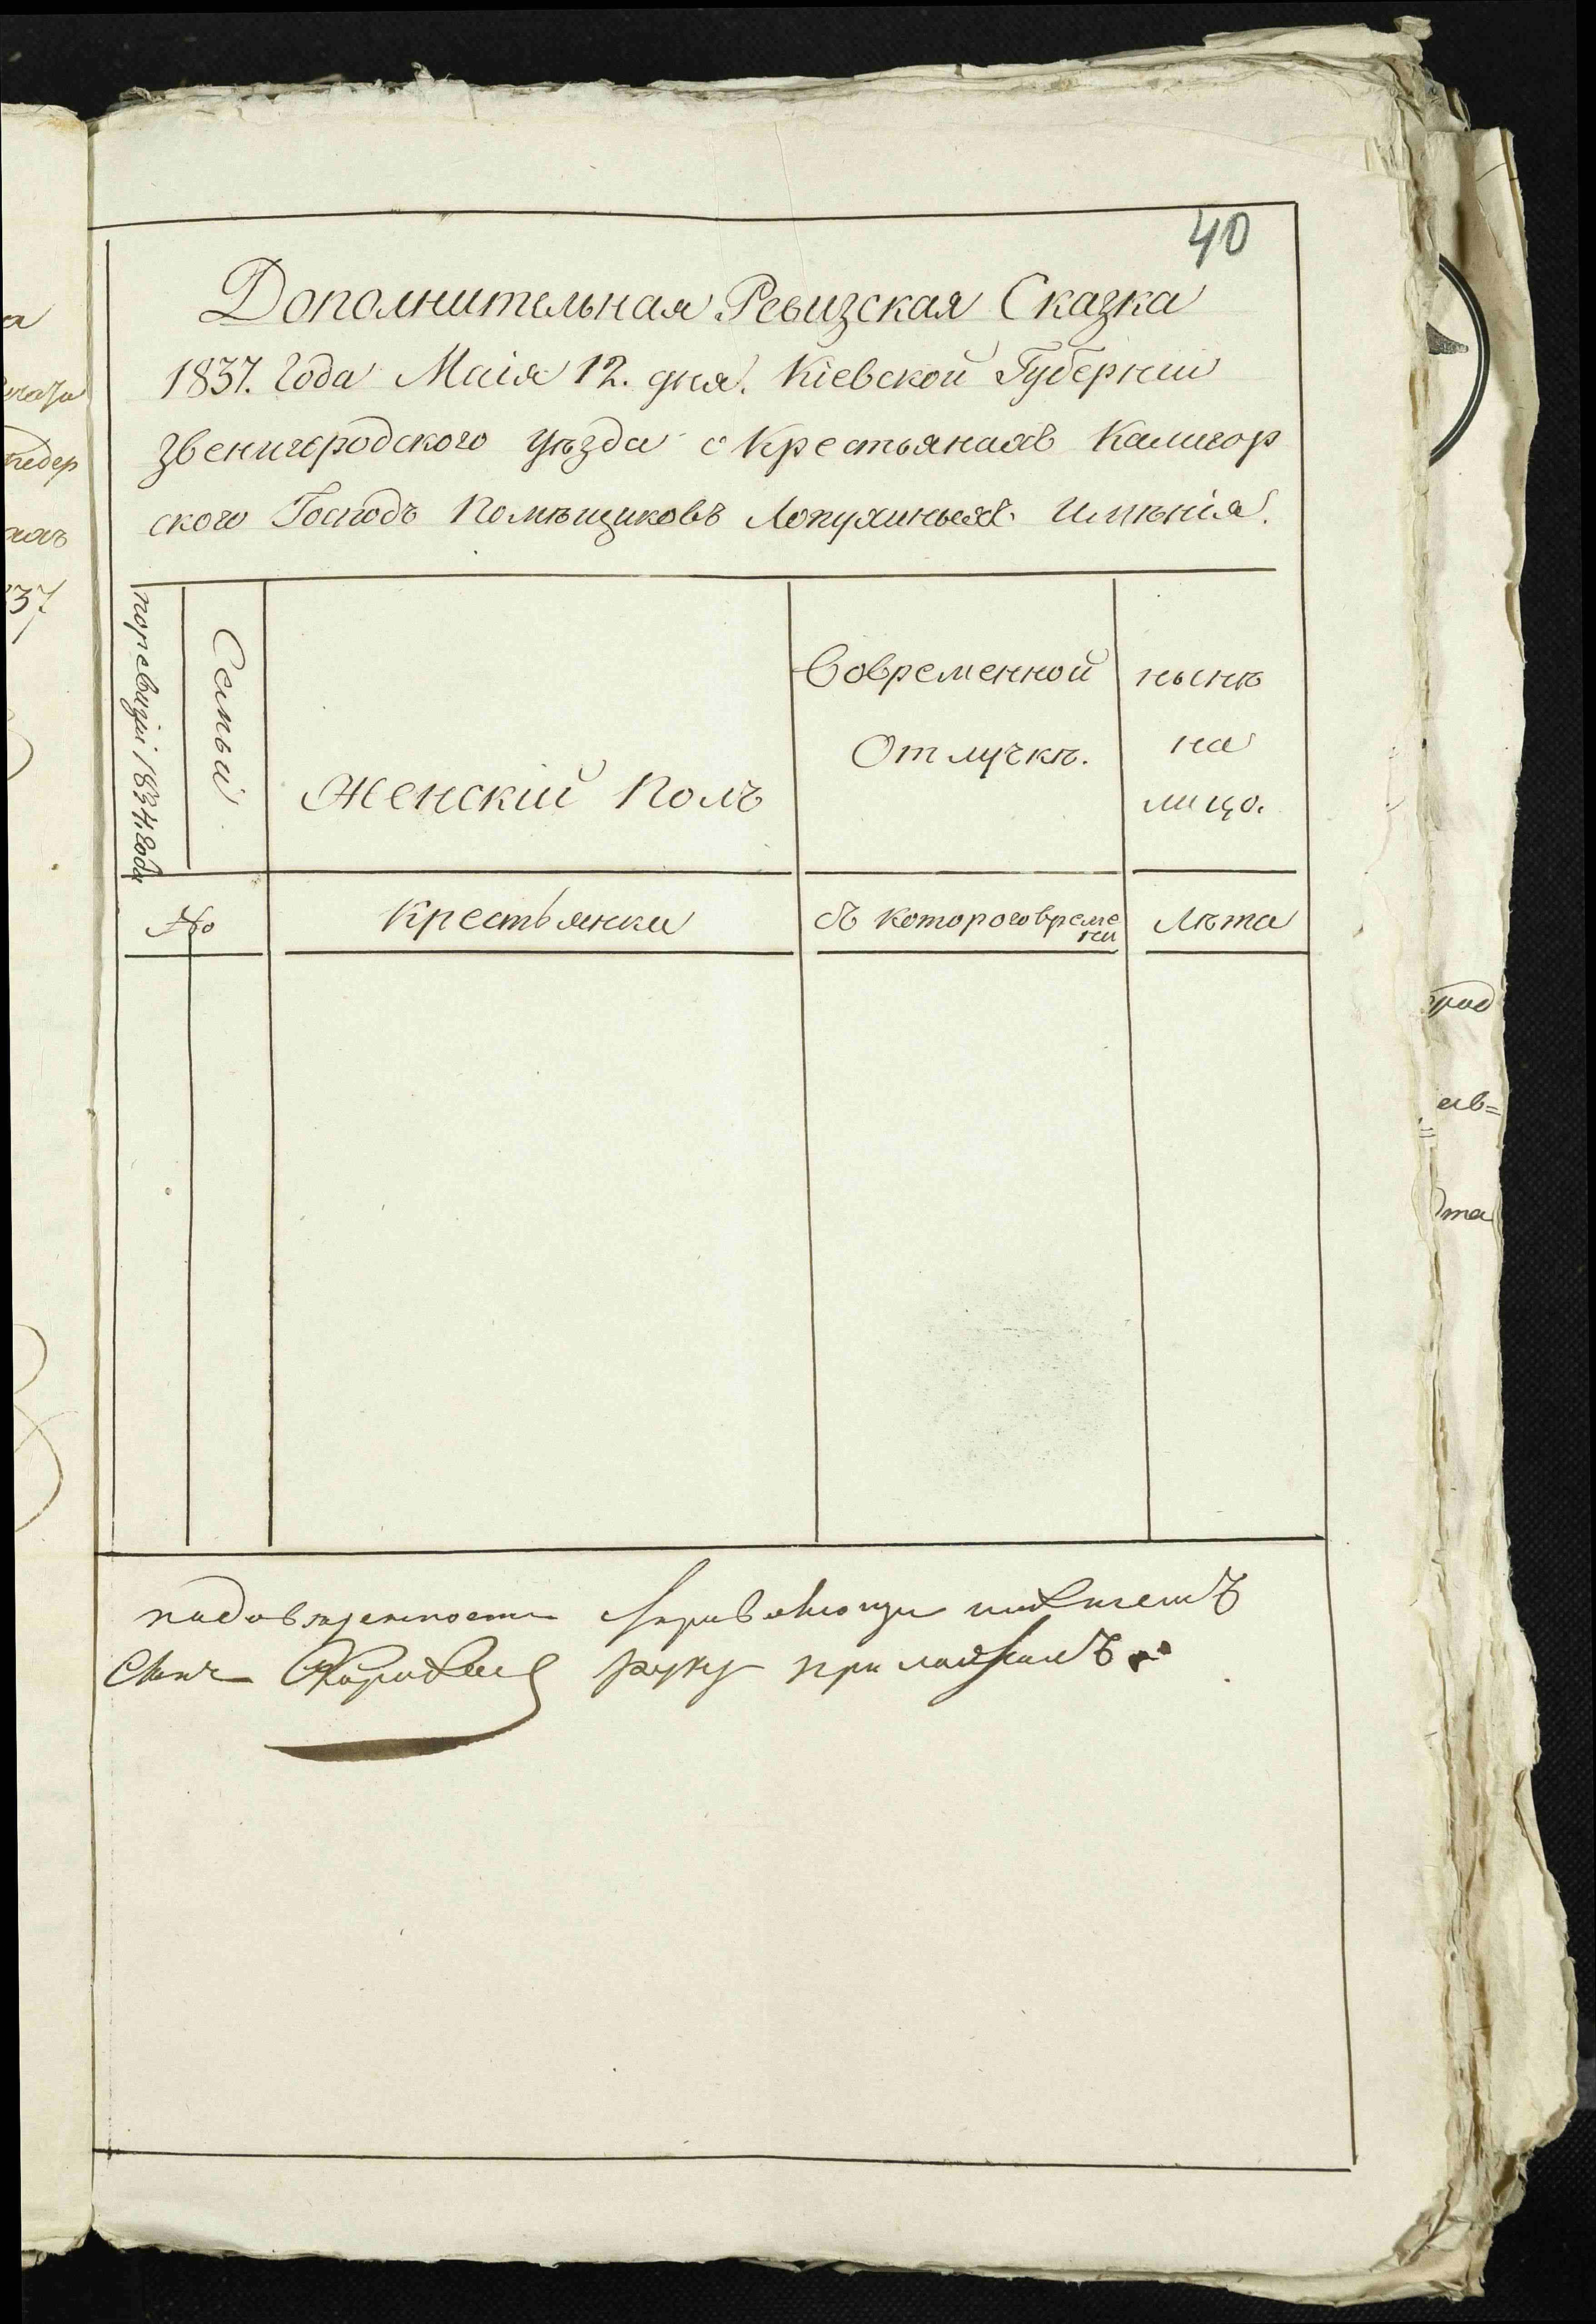 40
Дополнительная Ревизская Сказка
1837. Года Маія 12. дня. Кіевской Губерніи
Звенигородского уѣзда о Крестьянахъ Калигор
ского Господъ Помѣщиковъ Лопухиныхъ Имѣнія.
поревизіи 1834 года
Семьи
Женскій Полъ
Вовременной
Отлучкѣ.
нынѣ
на
лицо.
№
Крестьянки
Съ котораговреме
ни
Лѣта
руку приложилъ